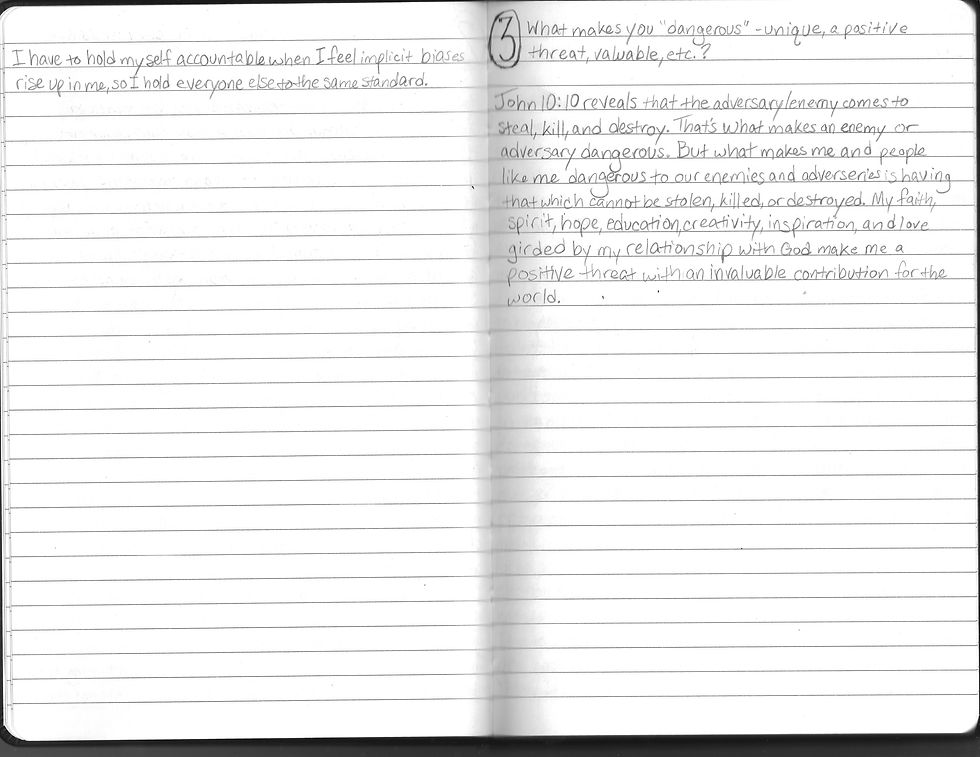 I have to hold myself accountable when I feel implicit biases
rise up in me, so I hold everyone else to the same standard.
3 What makes you "dangerous" - unique, a positive
threat, valuable, etc.?
John 10:10 reveals that the adversary/enemy comes to
steal, kill, and destroy. That's what makes an enemy or
adversary dangerous. But what makes me and people
like me dangerous to our enemies and adverseries is having
that which cannot be stolen, killed, or destroyed. My faith,
spirit, hope, education, creativity, inspiration, and love
girded by my relationship with God make me a
positive threat with an invaluable contribution for the
world.